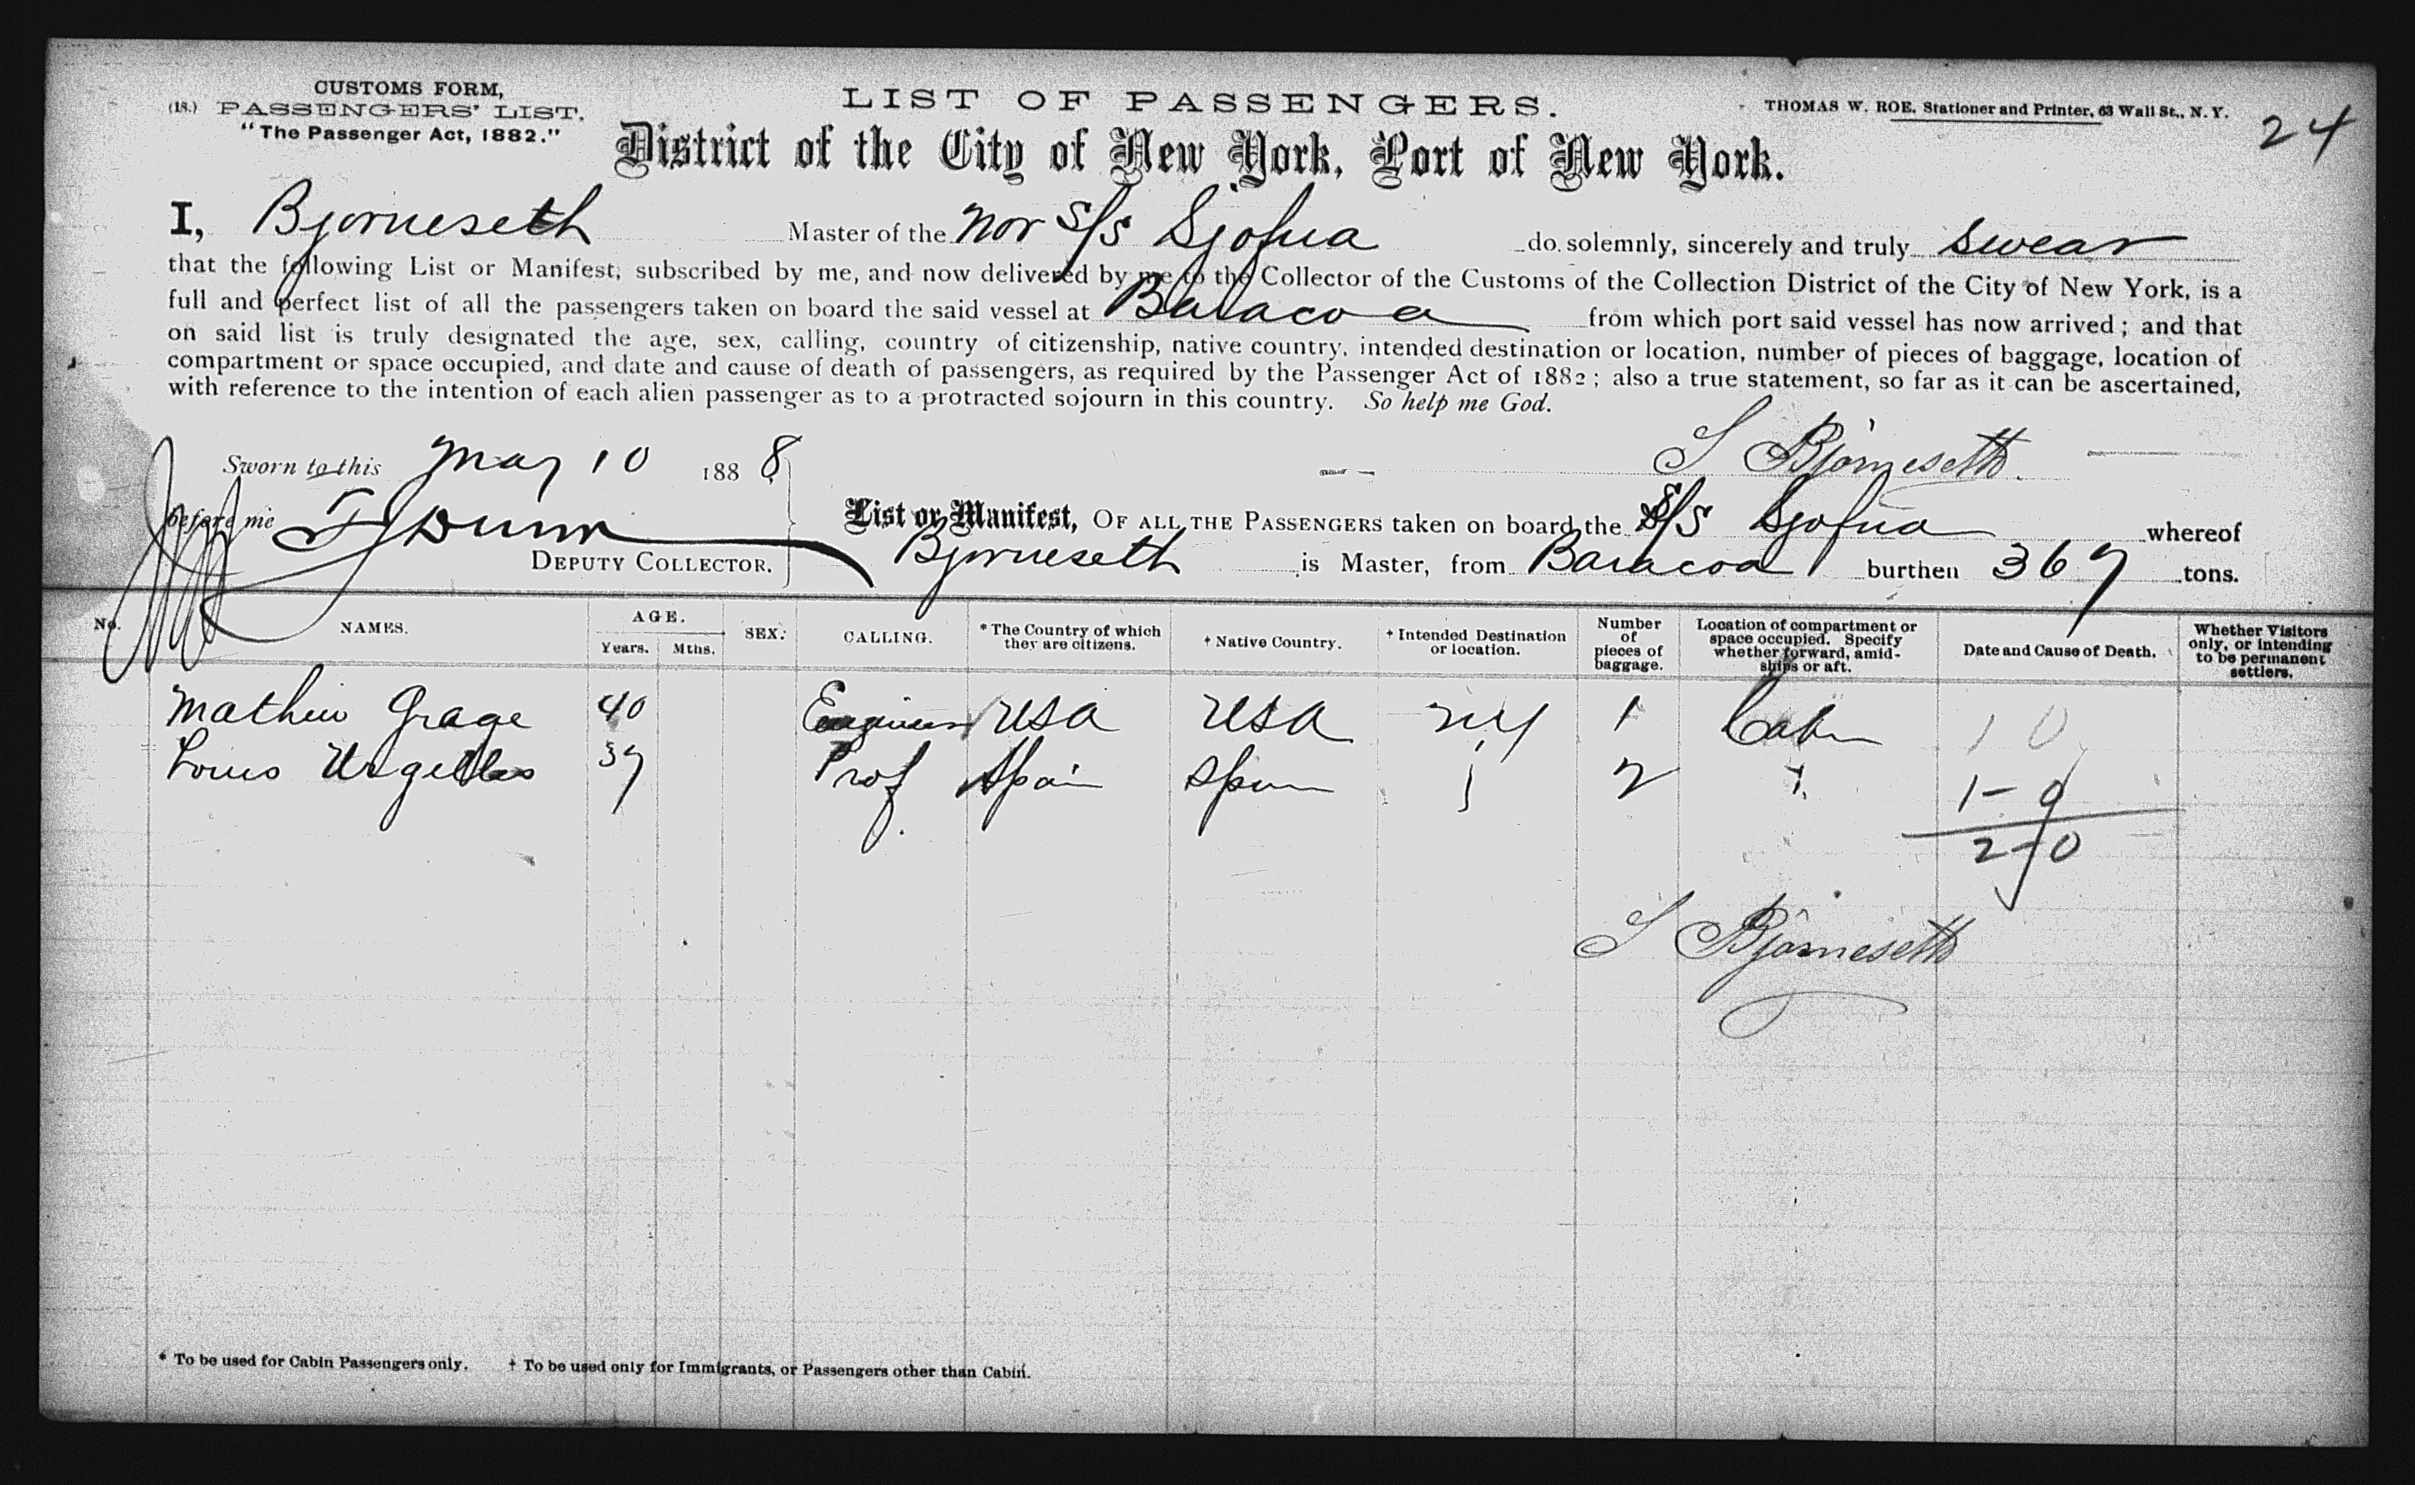 CUSTOMS FORM,
(18.) PASSENGERS' LIST.
"The Passenger Act, 1882."
LIST OF PASSENGERS.
THOMAS W. ROE, Stationer and Printer, 63 Wall St., N. Y.
24
District of the City of New York, Port of New York.
I, Bjorneseth Master of the Nor S/S Sjofna do solemnly, sincerely and truly swear
that the following List or Manifest, subscribed by me, and now delivered by me to the Collector of the Customs of the Collection District of the City of New York, is a
full and perfect list of all the passengers taken on board the said vessel at Baracoa from which port said vessel has now arrived; and that
on said list is truly designated the age, sex, calling, country of citizenship, native country, intended destination or location, number of pieces of baggage, location of
compartment or space occupied, and date and cause of death of passengers, as required by the Passenger Act of 1882; also a true statement, so far as it can be ascertained,
with reference to the intention of each alien passenger as to a protracted sojourn in this country. So help me God.
Sworn to this May 10 1888
S Bjorneseth
before me Dunn
DEPUTY COLLECTOR.
List or Manifest, OF ALL THE PASSENGERS taken on board the S/S Sjofna whereof
Bjorneseth is Master, from Baracoa burthen 367 tons.
No. NAMES. AGE. Years. Mths. SEX. CALLING. * The Country of which they are citizens. † Native Country. † Intended Destination or location. Number of pieces of baggage. Location of compartment or space occupied. Specify whether forward, amidships or aft. Date and Cause of Death. Whether Visitors only, or intending to be permanent settlers.
Mathew Grage 40 Engineer USA USA NY 1 Cabin 1 0
Louis Urgelles 37 Prof Spain Spain 2 1-0
2-0
S Bjorneseth
* To be used for Cabin Passengers only. † To be used only for Immigrants, or Passengers other than Cabin.